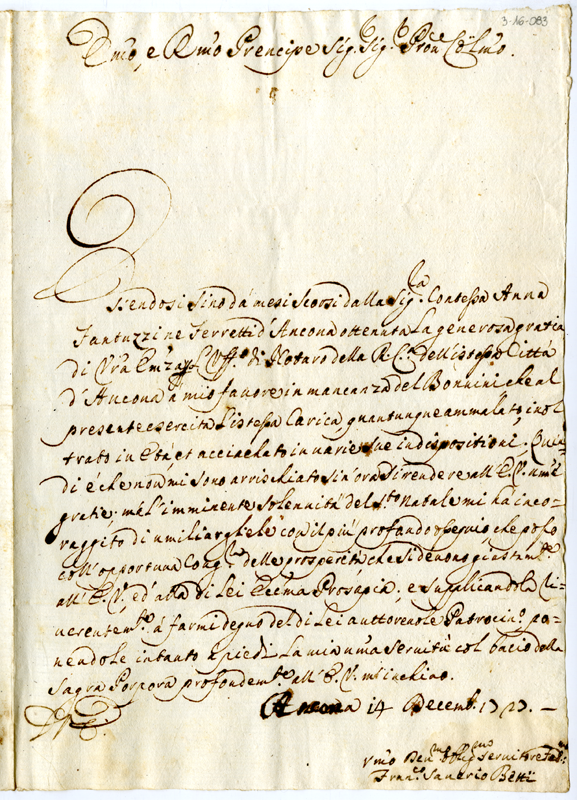 3-16-083
Emo, e Rmo Prencipe Sig.r Sig.r Pron Colmo.
Essendosi sino da mesi scorsi dalla Sig.ra Contessa Anna
Fantuzzi ne Ferretti d'Ancona ottenuta la generosa gratia
di Vra Emza Uff.o di Notaro della R. C. dell'istessa Città
d'Ancona à mio favore in mancanza del Bonnini che al
presente esercita l'istessa Carica quantunque ammalato, inol
trato in età, et acciachato in varie sue indispositioni; Quin
di è che non mi sono arrischiato sin'ora di rendere all'E.V. umil
gratie; mà l'imminente solennità del S.to Natale mi hà inco-
raggito di umiliarghele con il più profondo ossequio, che posso
coll'opportuna Cong.ra delle prosperità che si devono giustam.te
all'E.V., ed'alla di Lei Eccma Prosapia; e supplicandola ri-
verentem.te à farmi degno del di Lei auttorevole Patrocin.o, po-
nendole intanto à piedi la mia uma servitù col bacio della
Sagra Porpora profondem.te all'E.V. m'inchino.
Ancona 14 Decemb. 1727.
Vmo Dev.mo Oblig.mo Servitore
Fran.co Saverio Betti